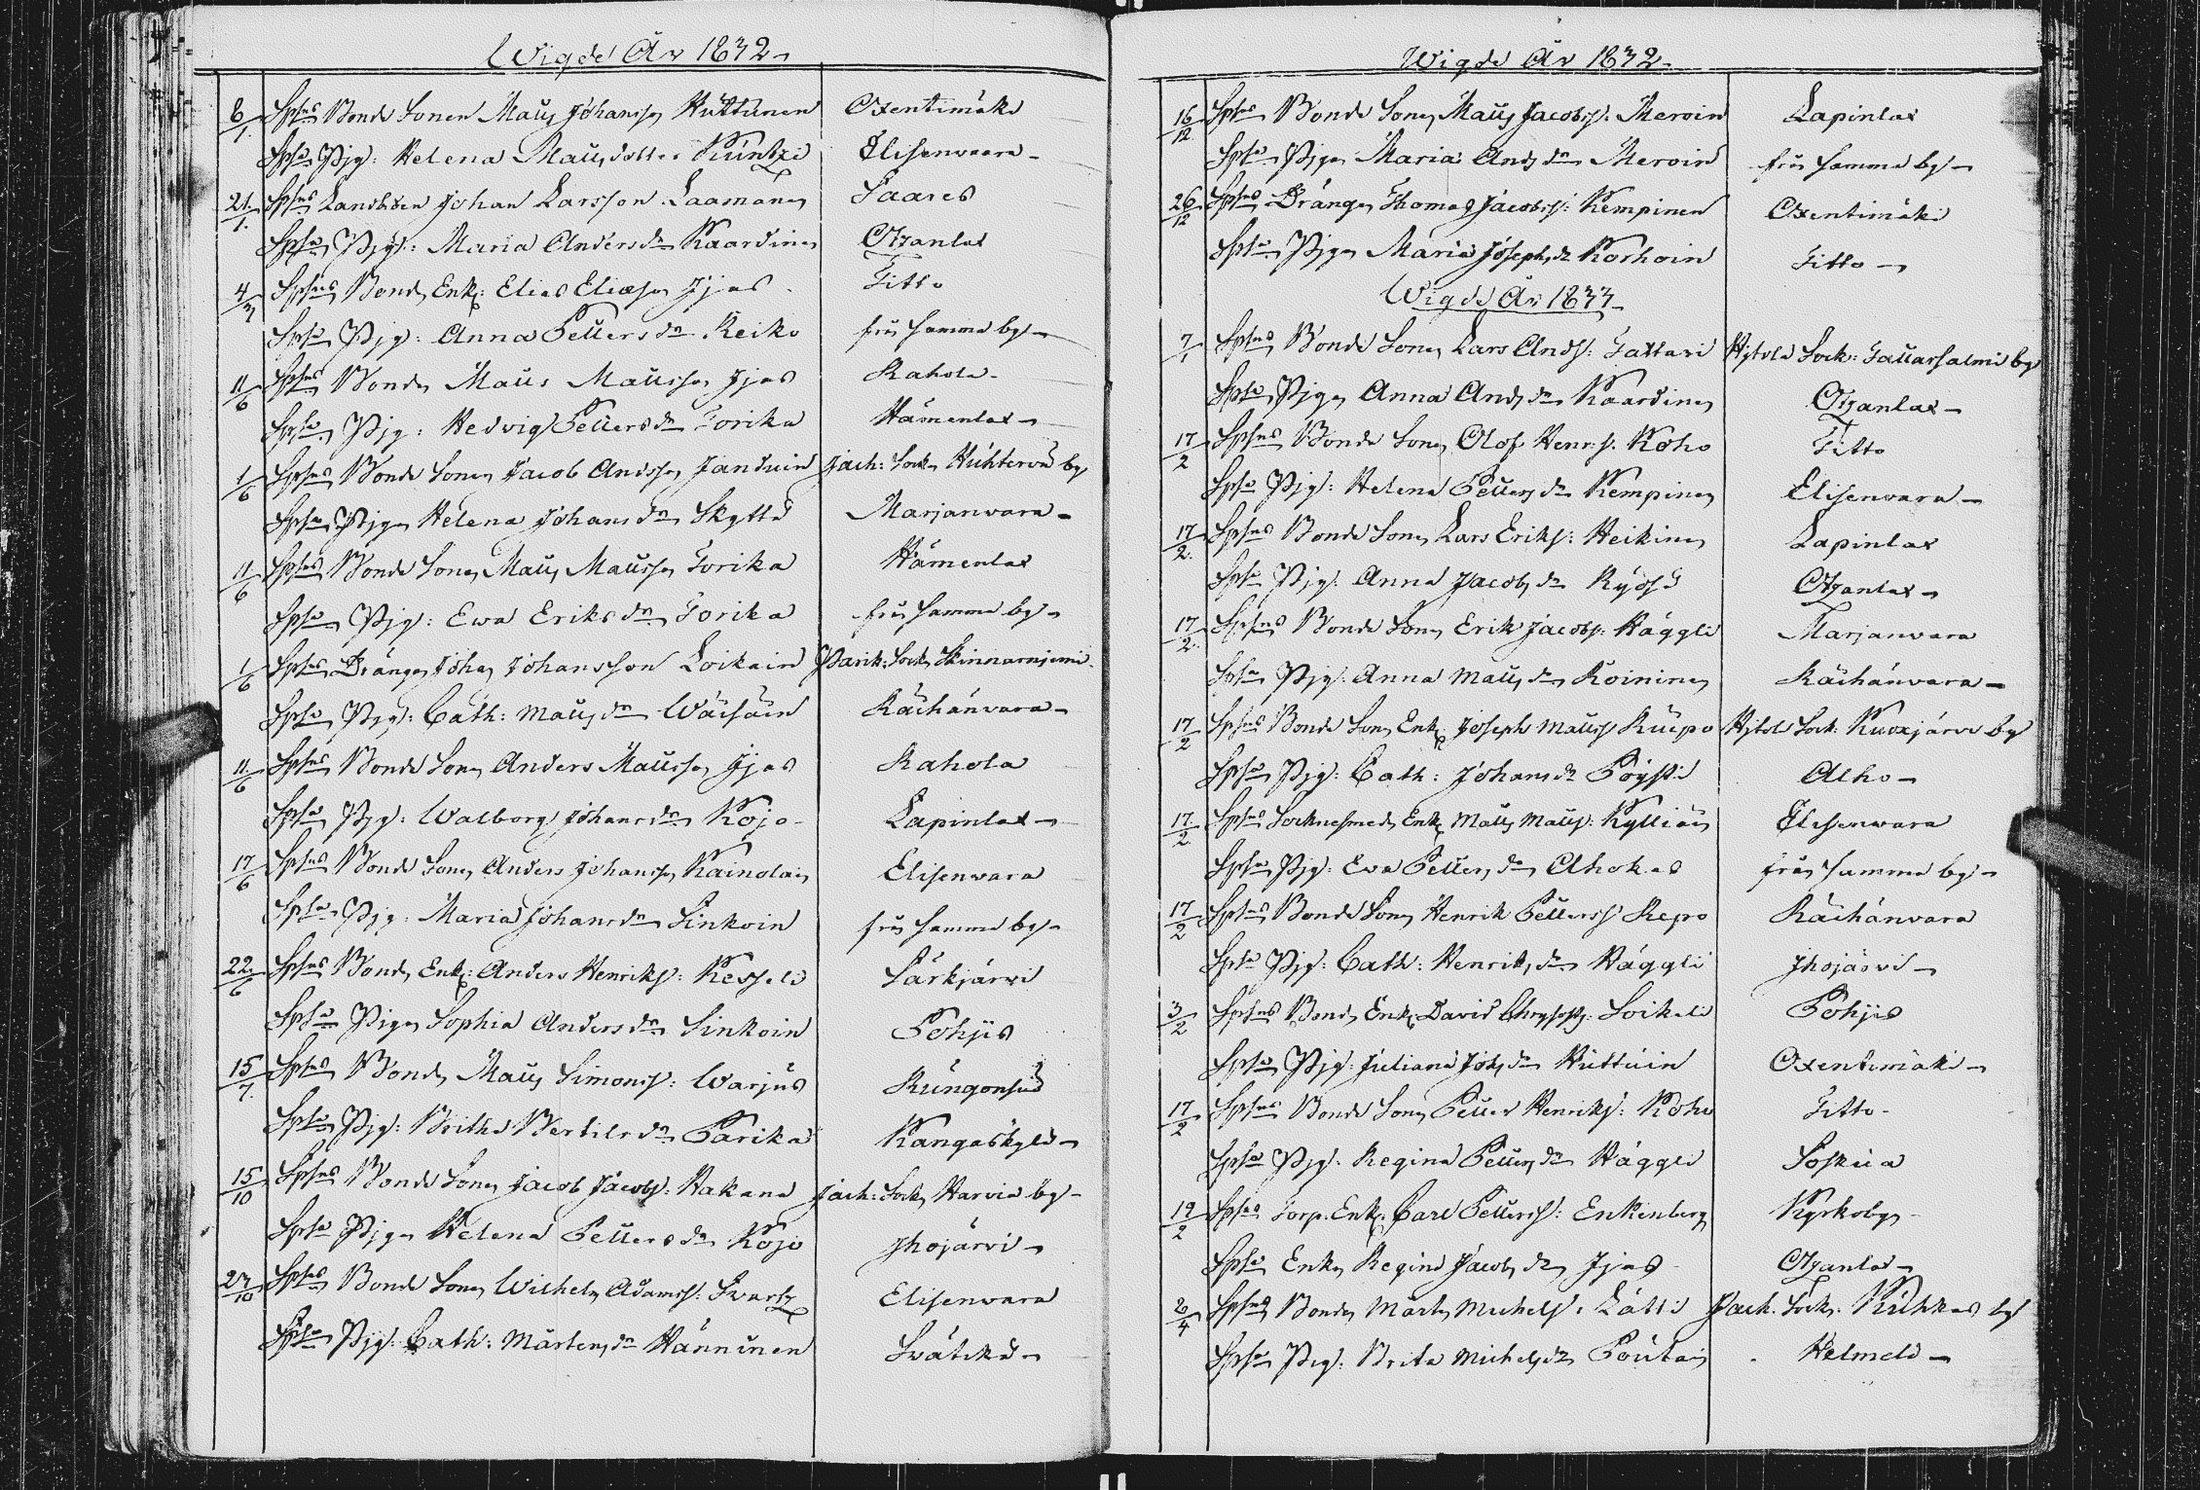 Wigde År 1832
6/1 Spsns Bonde Sonen Mats Johanss. Huttunen Oxentimäki
Spsa Pig: Helena Matsdotter Kuntzi Elisenvaara
21/1 Spsns Landbden Johan Larsson Laamanen Saares
Spsa Pig: Maria Anders dr Kaardinen Otzanlax
4/3 Spsns Bond. Enk: Elias Eliæson Ijas Titto
Spsa Pig: Anna Petters dr Reiko från samma by
11/6 Spsns Bonden Mats Matsson Ijas Rahola
Spsa Pig: Hedvig Petters dr Torika Hämenlax
1/6 Spsns Bonde Sonen Jacob Andsson Janduin Jach: Sock. by
Spsa Pigan Helena Johans dr Skyttä Marjanvara
11/6 Spsns Bonde Sonen Mats Matsson Torika Hämenlax
Spsa Pig: Ewa Eriks dr Torika från samma by
1/6 Spsns Drängen Johan Johansson Loikain Parik: Sock.
Spsa Pig: Cath: Mats dr Wäisäin Räihänvara
11/6 Spsns Bonde Sonen Anders Matsson Ijas Rahola
Spsa Pig: Walborg Johans dr Kojo Lapinlax
17/6 Spsns Bonde Sonen Anders Johansson Kainolain Elisenvara
Spsa Pig: Maria Johans dr Sinkoin från samma by
22/6 Spsns Bond. Enk: Anders Henriks: Kesseli Särkjärvi
Spsa Pigan Sophia Anders dr Sinkoin Pohjis
15/7 Spsns Bonden Mats Simonss: Warjus
Spsa Pig: Britha Bertils dr Parika Kangaskylä
15/10 Spsns Bonde Sonen Jacob Jacobs: Hakana Jach: Sock. Harvia by
Spsa Pigan Helena Petters dr Kojo Ihojärvi
23/10 Spsns Bonde Sonen Wilhelm Adamss: Svartz Elisenvara
Spsa Pig: Cath: Mårtens dr Hänninen Svätikä
Wigde År 1832
16/12 Spsns Bonde Sonen Mats Jacobss: Meroin Lapinlax
Spsa Pigan Maria Ands dr Meroin från samma by
26/12 Spsns Drängen Thomas Jacobss: Kempinen Oxentimäki
Spsa Pigan Maria Josephs dr Korhoin Titto
Wigde År 1833
7/1 Spsns Bonde Sonen Lars Ands: Tattari Hytola Sock: Tauarsalmi by
Spsa Pigan Anna Ands dr Kaardinen Otzanlax
17/2 Spsns Bonde Sonen Olof Henrs: Koho Titto
Spsa Pig: Helena Petters dr Kempinen Elisenvara
17/2 Spsns Bonde Sonen Lars Eriks: Heikinen Lapinlax
Spsa Pig: Anna Jacobs dr Otzanlax
17/2 Spsns Bonde Sonen Erik Jacobs: Häggli Marjanvara
Spsa Pig: Anna Mats dr Koininen Räihänvara
17/2 Spsns Bonde Son. Enk. Joseph Matss Ruepo Hytola Sock: by
Spsa Pig: Cath: Johans dr Pöysti Alho
17/2 Spsns Enk. Mats Matss: Kylliäin Elisenvara
Spsa Pig: Eva Petters dr Ahokas från samma by
17/2 Spsns Bonde Sonen Henrik Petterss Repo Räihänvara
Spsa Pig: Cath: Henriks dr Häggli Ihojärvi
3/2 Spsns Bond. Enk. David Soikeli Pohjis
Spsa Pig: Juliana Joh. dr Huttuin Oxentimäki
17/2 Spsns Bonde Sonen Petter Henriks: Koho Titto
Spsa Pig: Regina Petters dr Häggli Soskua
19/2 Spsns Torp. Enk. Carl Petterss: Enkenberg Kyrkoby
Spsa Enkan Regina Jacobs dr Ijas Otzanlax
2/4 Spsns Bonden Mårten Michels: Lätti Jach. Sock. by
Spsa Pig: Brita Michels dr Poutain Helmelä